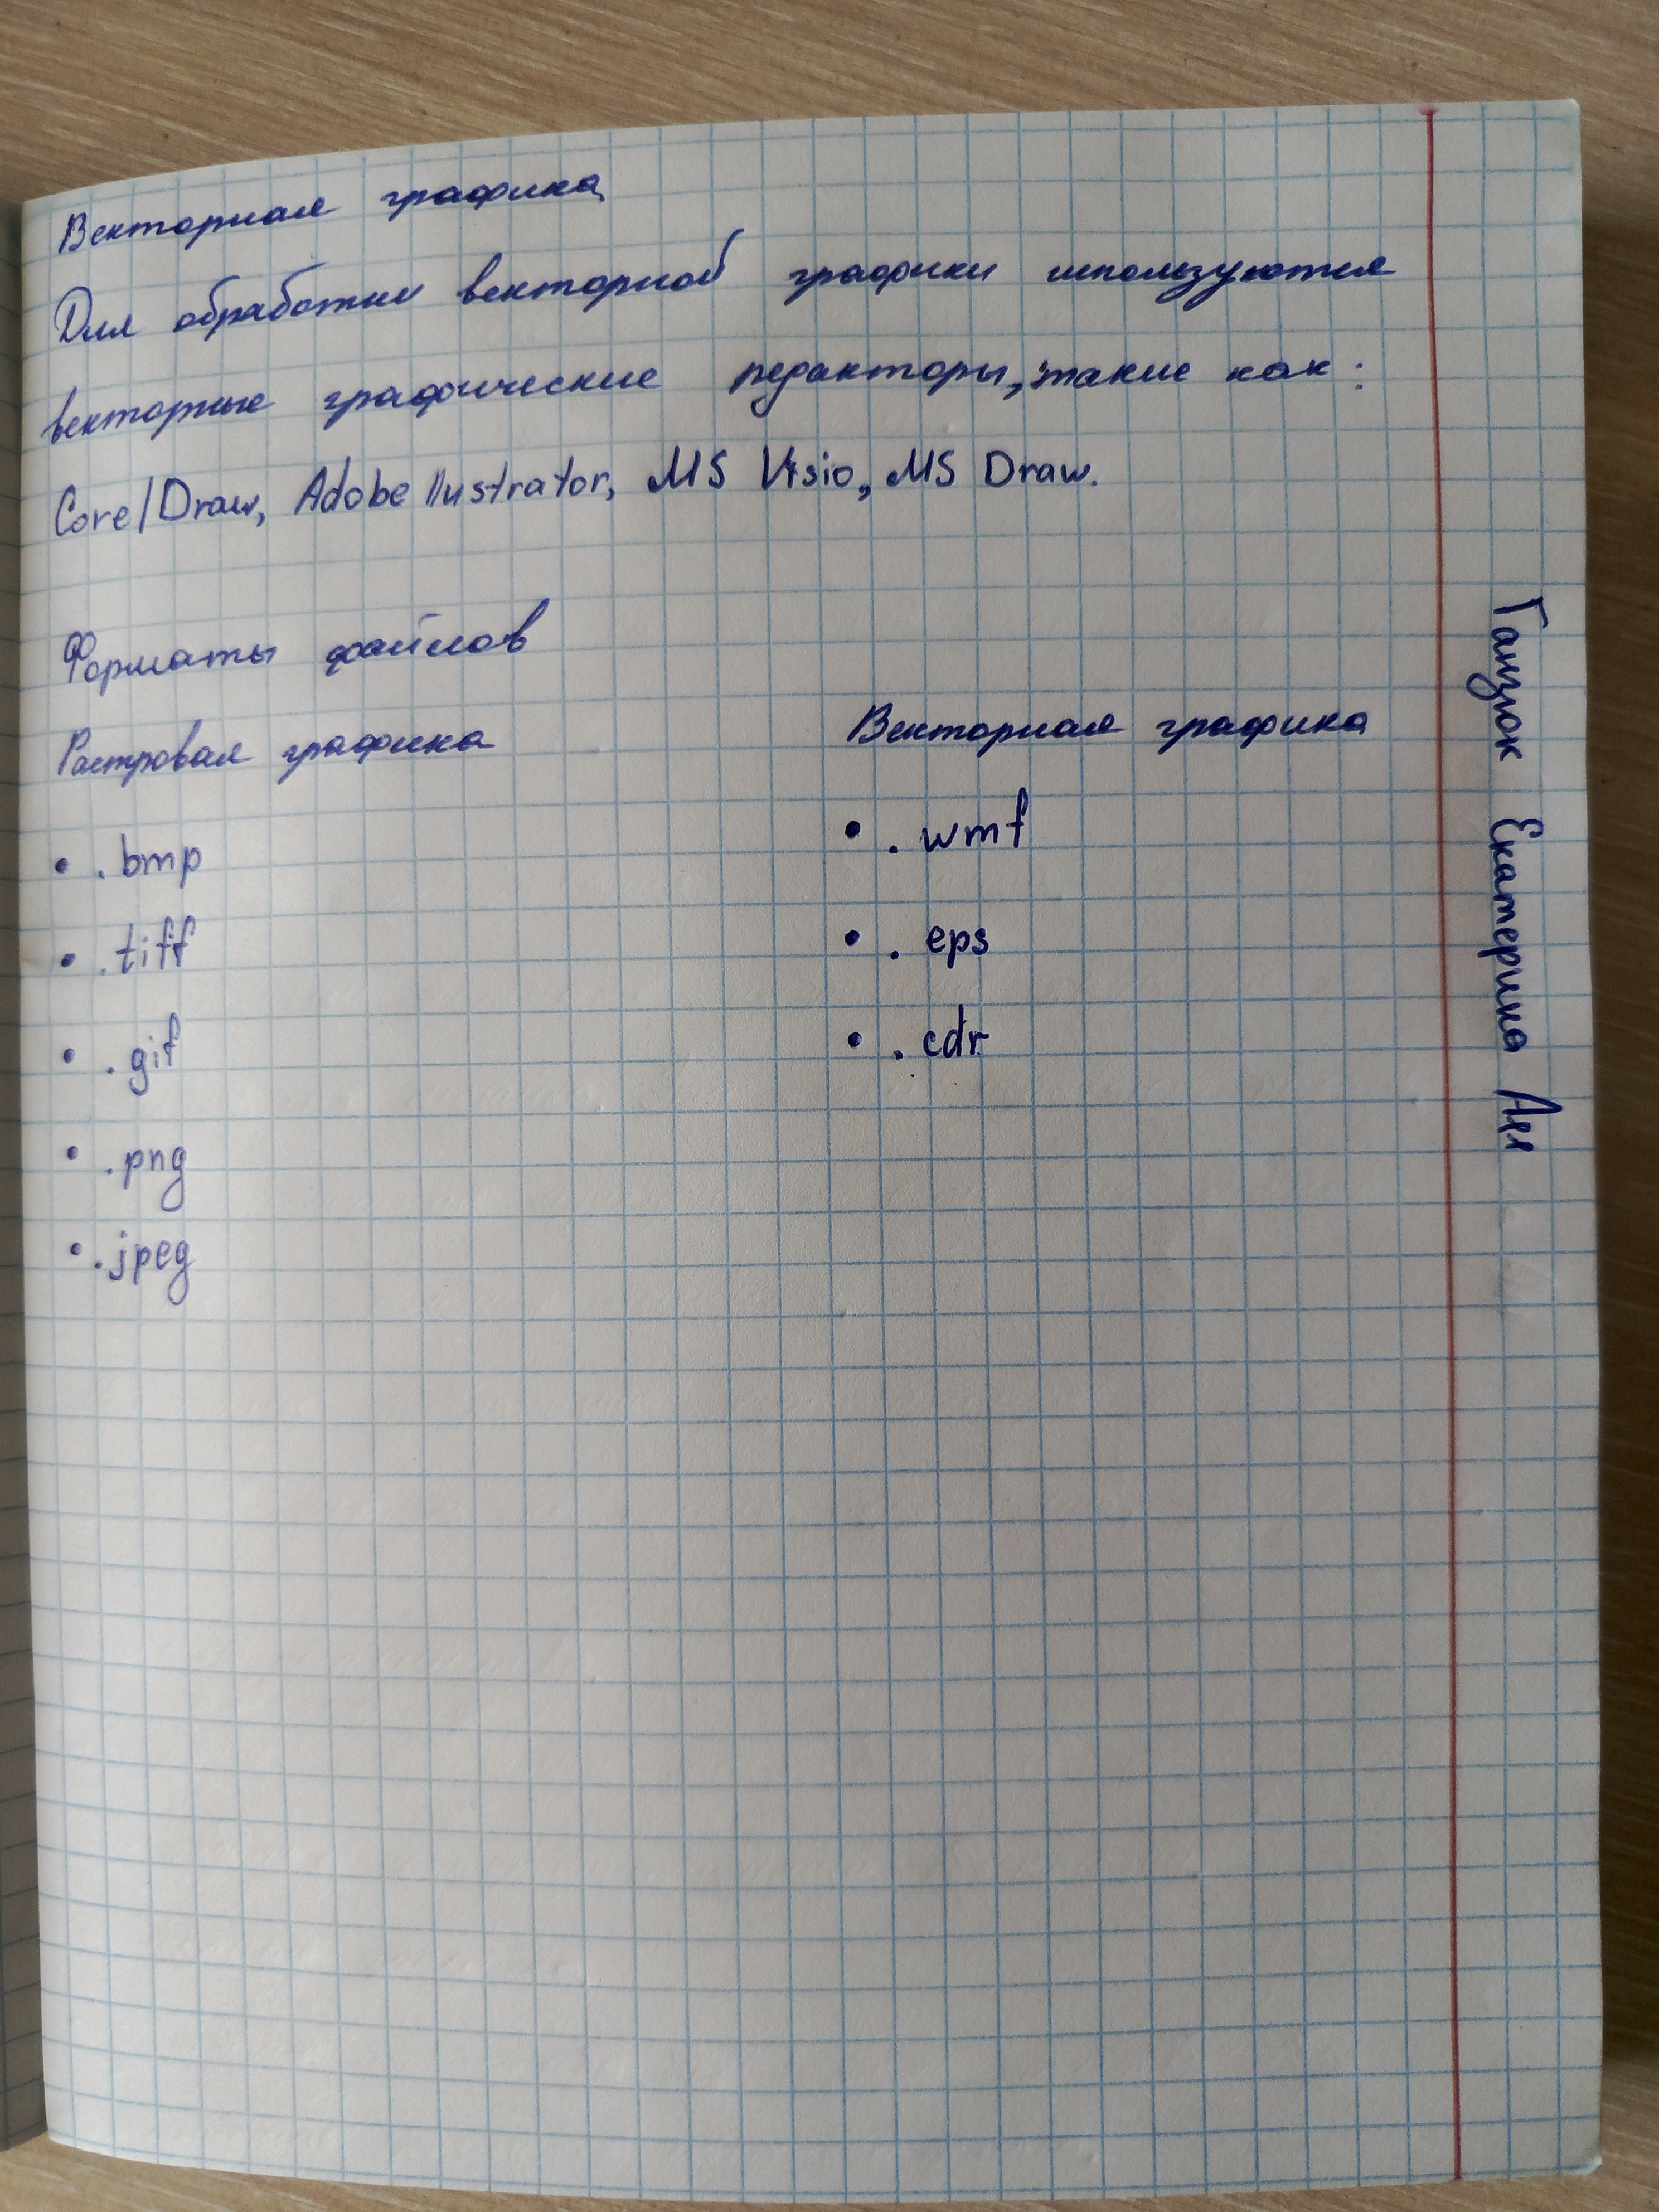 Векторная графика
Для обработки векторной графики используются
векторные графические редакторы, такие как:
Corel Draw, Adobe Ilustrator, MS Visio, MS Draw.
Форматы файлов
Растровая графика
• .bmp
• .tiff
• .gif
• .png
• .jpeg
Векторная графика
• .wmf
• .eps
• .cdr
Ганзюк Екатерина